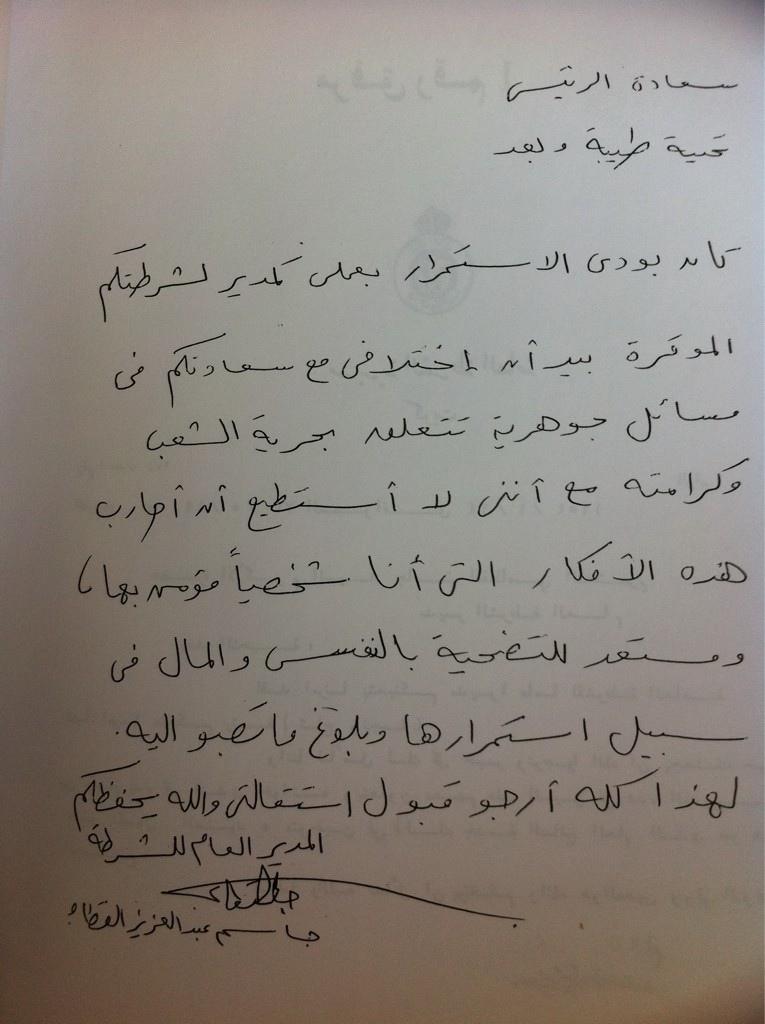 سعادة الرئيس
تحية طيبة وبعد
كان بودى الاستمرار بعملى كمدير لشرطتكم
الموقرة بيد أن إختلافى مع سعادتكم فى
مسائل جوهرية تتعلق بحرية الشعب
وكرامته مع أننى لا أستطيع أن أحارب
هذه الأفكار التى أنا شخصياً مؤمن بها،
ومستعد للتضحية بالنفس والمال فى
سبيل استمرارها وبلوغ ما تصبو اليه.
لهذا كله أرجو قبول استقالتى والله يحفظكم
المدير العام للشرطة
جاسم عبدالعزيز القطامى
مرفق رقم